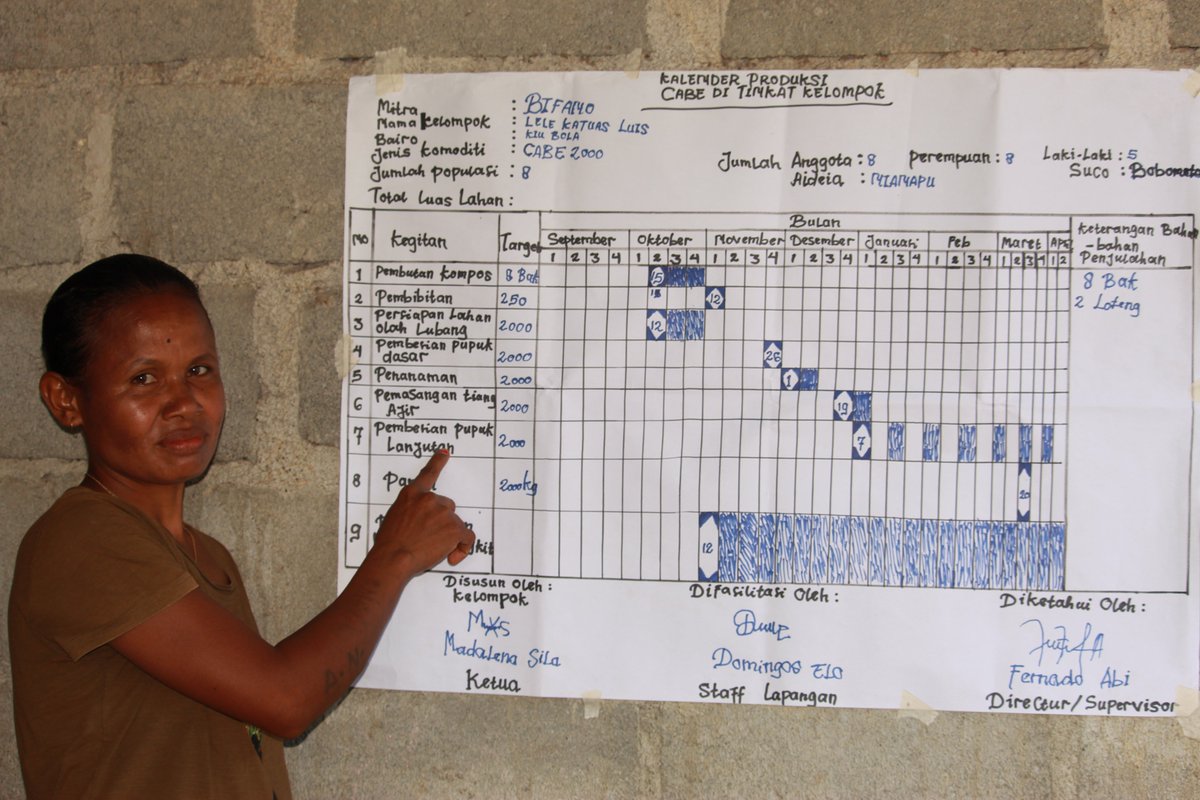 KALENDER PRODUKSI
CABE DI TINKAT KELOMPOK
Mitra : BIFANO
Nama kelompok : LELE KATUAS LUIS
Bairo : KIU BOLA
Jenis komoditi : CABE 2000
Jumlah populasi : 8
Jumlah Anggota : 8 perempuan : 8 Laki-Laki : 5
Aideia : NIAMAPU Suco : Bobometo
Total Luas Lahan :
No Kegitan Target Bulan Keterangan Bahan
-bahan
Penjulahan
September Oktober November Desember Januari Feb Maret April
1 2 3 4 1 2 3 4 1 2 3 4 1 2 3 4 1 2 3 4 1 2 3 4 1 2 3 4 1 2
1 Pembutan kompos 8 Bak 15 8 Bak
2 Pembibitan 250 12 2 Loteng
3 Persiapan Lahan
olah Lubang 2000 12
4 Pemberian pupuk
dasar 2000 26
5 Penanaman 2000 1
6 Pemasangan tiang
Ajir 2000 19
7 Pemberian pupuk
Lanjutan 2000 7
8 2000kg 20
9 12
Disusun Oleh :
Kelompok
Madalena Sila
Ketua
Difasilitasi Oleh :
Domingos ELO
Staff Lapangan
Diketahui Oleh :
Fernado Abi
Directur/Supervisor
A.N